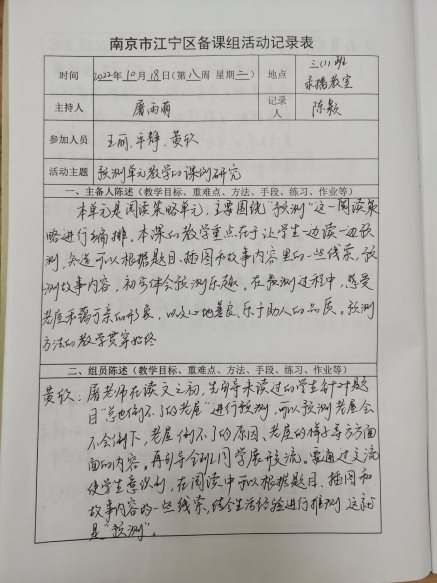 南京市江宁区备课组活动记录表
时间 2022年10月18日(第八周 星期二) 地点 三(1)班 录播教室
主持人 屠雨萌 记录人 陈颖
参加人员 王丽、辛静、黄欣
活动主题 预测单元教学的课例研究
一、主备人陈述(教学目标、重难点、方法、手段、练习、作业等)
本单元是阅读策略单元,主要围绕“预测”这一阅读策
略进行编排。本课的教学重点在于让学生一边读一边预
测,知道可以根据题目、插图和故事内容里的一些线索,预
测故事内容,初步体会预测乐趣。在预测过程中,感受
老屋和蔼可亲的形象,以及心地善良、乐于助人的品质。预测
方法的教学贯穿始终
二、组员陈述(教学目标、重难点、方法、手段、练习、作业等)
黄欣:屠老师在读文之初,先引导未读过的学生针对题
目“总也倒不了的老屋”进行预测,可以预测老屋会
不会倒下,老屋倒不了的原因、老屋的样子等方方面
面的内容。再引导全班同学展开交流。要通过交流
使学生意识到,在阅读中可以根据题目、插图和
故事内容的一些线索,结合生活经验进行推测,这就
是“预测”。